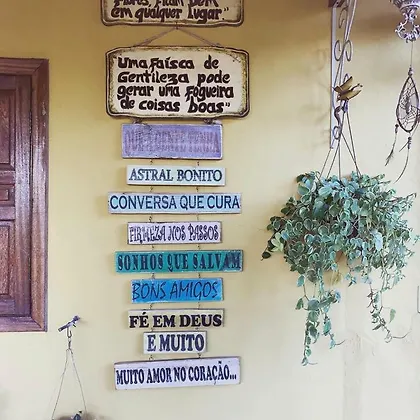 em qualquer lugar."
Uma faísca de
Gentileza pode
gerar uma fogueira
de coisas boas"
QUE A GENTE TENHA
ASTRAL BONITO
CONVERSA QUE CURA
FIRMEZA NOS PASSOS
SONHOS QUE SALVAM
BONS AMIGOS
FÉ EM DEUS
E MUITO
MUITO AMOR NO CORAÇÃO...